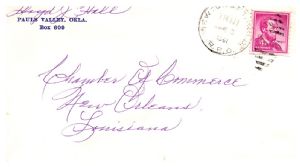 Floyd J. Hall
PAULS VALLEY, OKLA.
Box 609
Chamber of Commerce
New Orleans
Louisiana